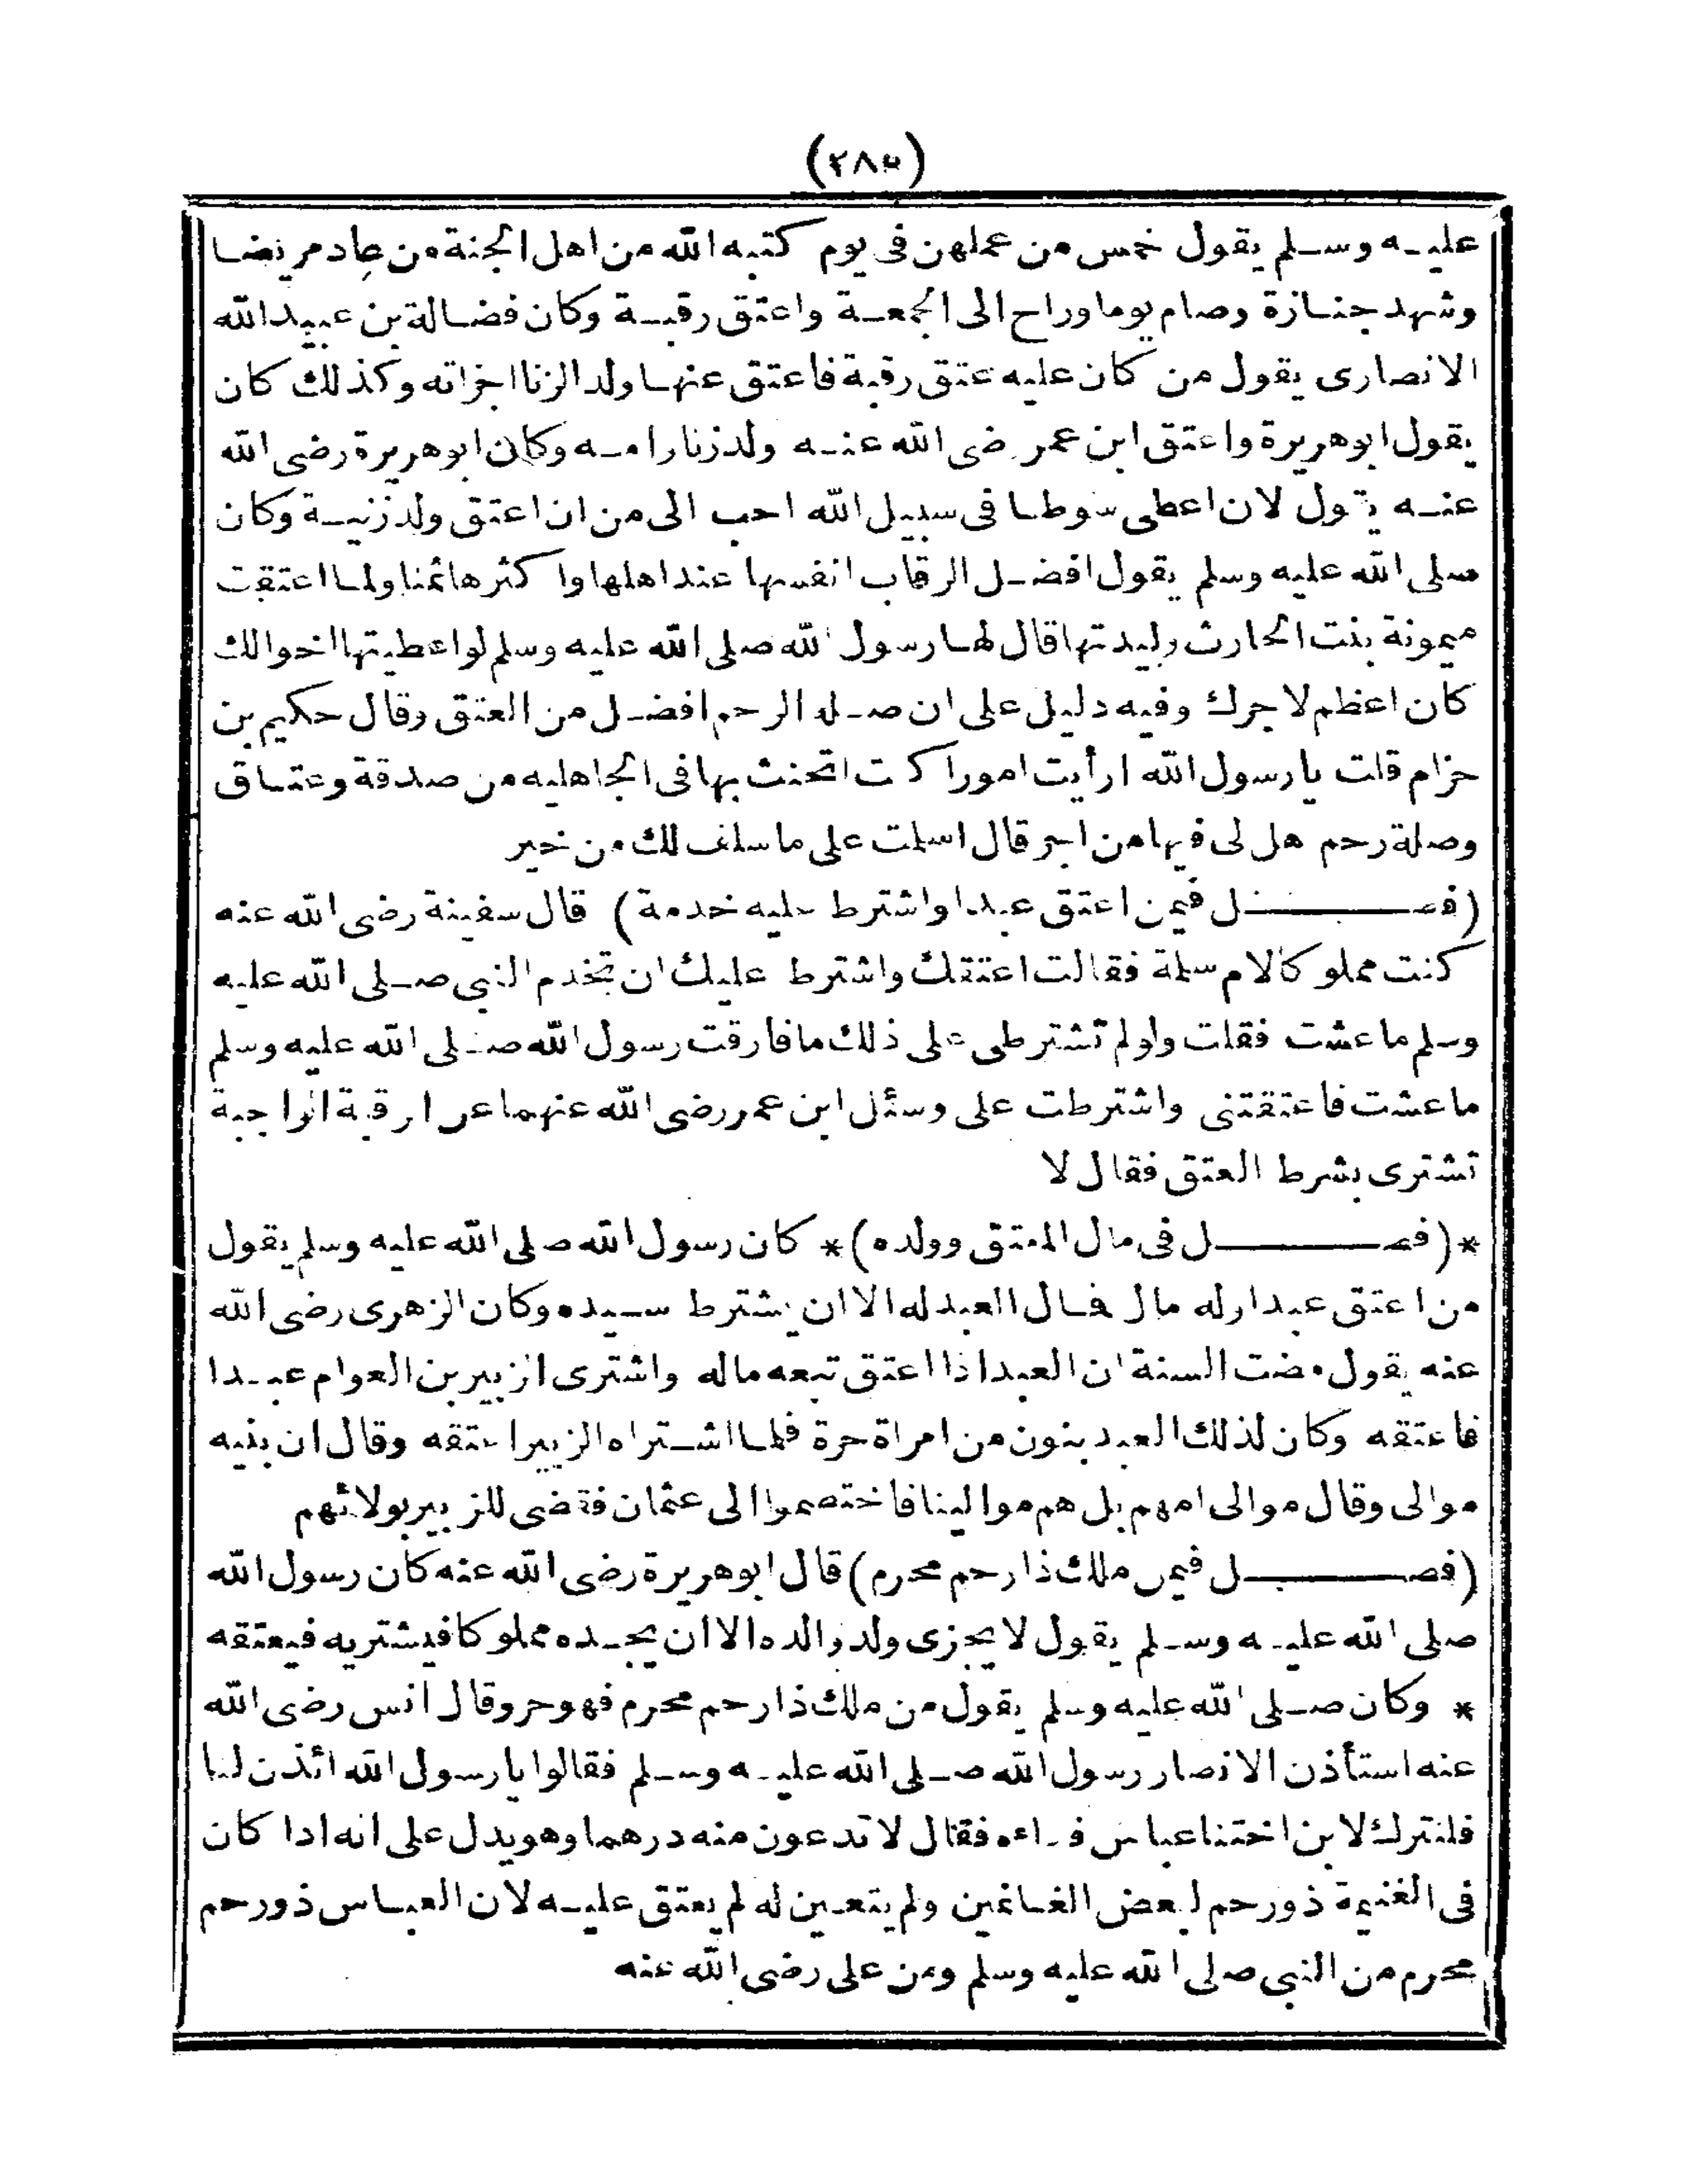 (٢٨٥)
عليه وسلم يقول خمس من عملهن فى يوم كتبه الله من اهل الجنة من عاد مريضا
وشهد جنازة وصام يوما وراح الى الجمعة واعتق رقبة وكان فضالة بن عبيد الله
الانصارى يقول من كان عليه عتق رقبة فاعتق عنها ولد الزنا اجزاته وكذلك كان
يقول ابو هريرة واعتق ابن عمر رضى الله عنه ولد زنا وامه وكان ابو هريرة رضى الله
عنه يقول لان اعطى سوطا فى سبيل الله احب الى من ان اعتق ولد زنية وكان
صلى الله عليه وسلم يقول افضل الرقاب انفسها عند اهلها واكثرها ثمنا ولما اعتقت
ميمونة بنت الحارث وليدتها قال لها رسول الله صلى الله عليه وسلم لو اعطيتها اخوالك
كان اعظم لاجرك وفيه دليل على ان صلة الرحم افضل من العتق وقال حكيم بن
حزام قلت يا رسول الله ارأيت امورا كنت اتحنث بها فى الجاهليه من صدقة وعتاق
وصلة رحم هل لى فيها من اجر قال اسلمت على ما سلف لك من خير
(فصل فيمن اعتق عبدا واشترط عليه خدمة) قال سفينة رضى الله عنه
كنت مملوكا لام سلمة فقالت اعتقك واشترط عليك ان تخدم النبى صلى الله عليه
وسلم ما عشت فقلت ولو لم تشترطى على ذلك ما فارقت رسول الله صلى الله عليه وسلم
ما عشت فاعتقتنى واشترطت على وسئل ابن عمر رضى الله عنهما عن الرقبة الواجبة
تشترى بشرط العتق فقال لا
*(فصل فى مال المعتق وولده)* كان رسول الله صلى الله عليه وسلم يقول
من اعتق عبدا وله مال فمال العبد له الا ان يشترط سيده وكان الزهرى رضى الله
عنه يقول مضت السنة ان العبد اذا اعتق تبعه ماله واشترى الزبير بن العوام عبدا
فاعتقه وكان لذلك العبد بنون من امراة حرة فلما اشتراه الزبير اعتقه وقال ان بنيه
موالى وقال موالى امهم بل هم موالينا فاختصموا الى عثمان فقضى للزبير بولائهم
(فصل فيمن ملك ذا رحم محرم) قال ابو هريرة رضى الله عنه كان رسول الله
صلى الله عليه وسلم يقول لا يجزى ولد والده الا ان يجده مملوكا فيشتريه فيعتقه
* وكان صلى الله عليه وسلم يقول من ملك ذا رحم محرم فهو حر وقال انس رضى الله
عنه استأذن الانصار رسول الله صلى الله عليه وسلم فقالوا يا رسول الله ائذن لنا
فلنترك لابن اختنا عباس فداءه فقال لا تدعون منه درهما وهو يدل على انه اذا كان
فى الغنيمة ذو رحم لبعض الغانمين ولم يتعين له لم يعتق عليه لان العباس ذو رحم
محرم من النبى صلى الله عليه وسلم ومن على رضى الله عنه